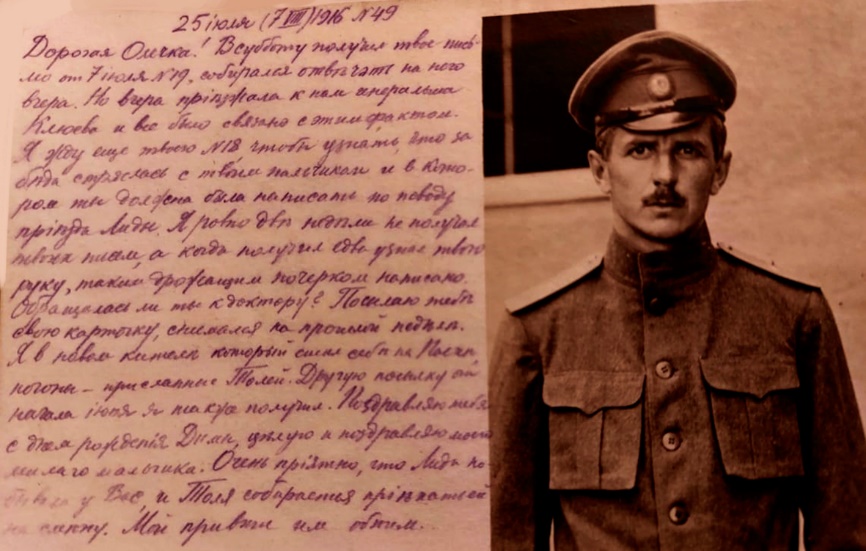 25 іюля (7 VIII) 1916 N49
Дорогая Олечка! Въ субботу получил твое пись-
мо от 7 іюля N19, собирался отвѣчать на него
вчера. Но вчера пріѣзжала к нам генеральша
Клюева и все было связано с этим фактом.
Я жду еще твоего N18 чтобы узнать, что за
бѣда стряслась с твоим пальчиком и в кото-
ром ты должна была написать по поводу
пріѣзда Лиды. Я ровно двѣ недѣли не получал
твоих писем, а когда получил едва узнал твою
руку, таким дрожащим почерком написано.
Обращалась ли ты к доктору? Посылаю тебѣ
свою карточку, снимался на прошлой недѣлѣ.
Я в новом кителѣ который сшил себѣ на
погоны – присланные Толей. Другую посылку от
начала іюня я также получил. Поздравляю тебя
с днем рожденія Димы, цѣлую и поздравляю моего
милаго мальчика. Очень пріятно, что Лида по-
бывала у Вас, и Толя собирается пріѣхать ей
на смѣну. Мой привѣт им обоим.